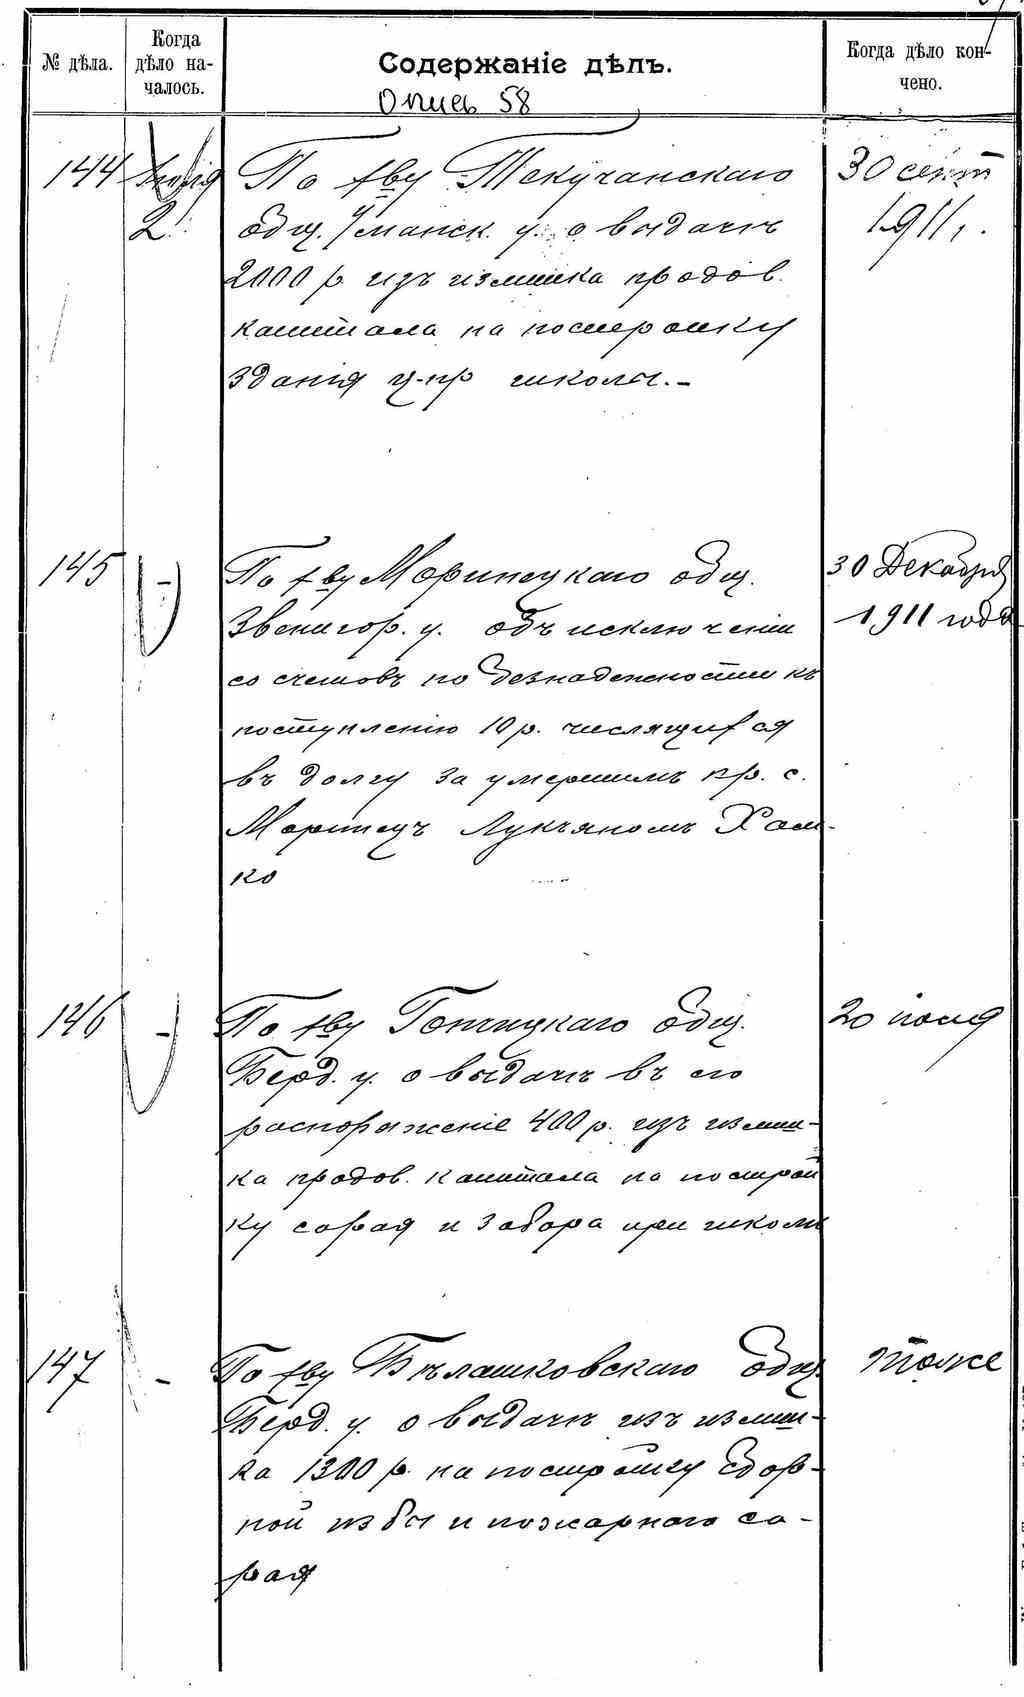 № дѣла.
Когда
дѣло на-
чалось.
Содержаніе дѣлъ.
Когда дѣло кон-
чено.
Опись 58
144 Іюля По х-ву Текучанскаго 30 сент
2. общ. Уманск. у. о выдачѣ 1911 г.
2000 р. изъ излишка продов.
капитала на постройку
зданія ц-пр школы.-
145 - По х-ву Моринецкаго общ. 30 Декабря
Звенигор. у. объ исключеніи 1911 года
со счетовъ по безнадежности къ
поступленію 10 р. числящихся
въ долгу за умершимъ кр. с.
Моринецъ Лукьяномъ Хам-
ко
146 - По х-ву Гопчицкаго общ. 20 іюля
Берд. у. о выдачѣ въ его
распоряженіе 400 р. изъ излиш-
ка продов. капитала на построй
ку сарая и забора при школѣ
147 - По х-ву Бѣлашковскаго общ. тоже
Берд. у. о выдачѣ изъ излиш-
ка 1300 р. на постройку сбор-
ной избы и пожарнаго са-
рая